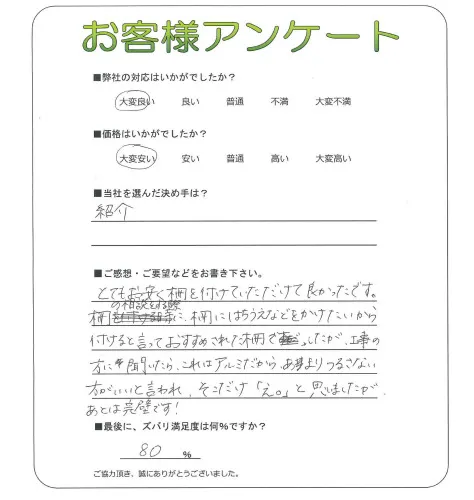 お客様アンケート
■弊社の対応はいかがでしたか？
大変良い 良い 普通 不満 大変不満
■価格はいかがでしたか？
大変安い 安い 普通 高い 大変高い
■当社を選んだ決め手は？
紹介
■ご感想・ご要望などをお書き下さい。
とてもお安く柵を付けていただけて良かったです。
の相談をする際
柵に、柵にはちうえなどをかけたいから
付けると言っておすすめされた柵でだったが、工事の
方に聞いたら、これはアルミだから、あまりつるさない
方がいいと言われ、そこだけ「え。」と思いましたが、
あとは完璧です！
■最後に、ズバリ満足度は何%ですか？
80 %
ご協力頂き、誠にありがとうございました。